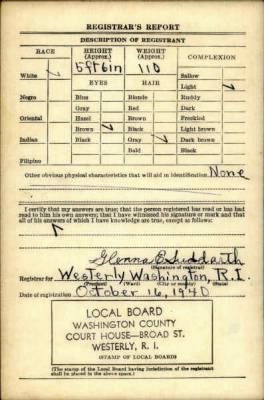 REGISTRAR'S REPORT
DESCRIPTION OF REGISTRANT
RACE HEIGHT (Approx.) WEIGHT (Approx.) COMPLEXION
White ✓ 5ft 6in 110 Sallow
EYES HAIR Light ✓
Negro Blue Blonde Ruddy
Gray Red Dark
Oriental Hazel Brown Freckled
Brown ✓ Black Light brown
Indian Black Gray ✓ Dark brown
Bald Black
Filipino
Other obvious physical characteristics that will aid in identification None
I certify that my answers are true; that the person registered has read or has had
read to him his own answers; that I have witnessed his signature or mark and that
all of his answers of which I have knowledge are true, except as follows:
Glenna E. Suddarth
(Signature of registrar)
Registrar for Westerly Washington, R.I.
(Precinct) (Ward) (City or county) (State)
Date of registration October 16, 1940
LOCAL BOARD
WASHINGTON COUNTY
COURT HOUSE—BROAD ST.
WESTERLY, R. I.
(STAMP OF LOCAL BOARD)
(The stamp of the Local Board having jurisdiction of the registrant
shall be placed in the above space.)